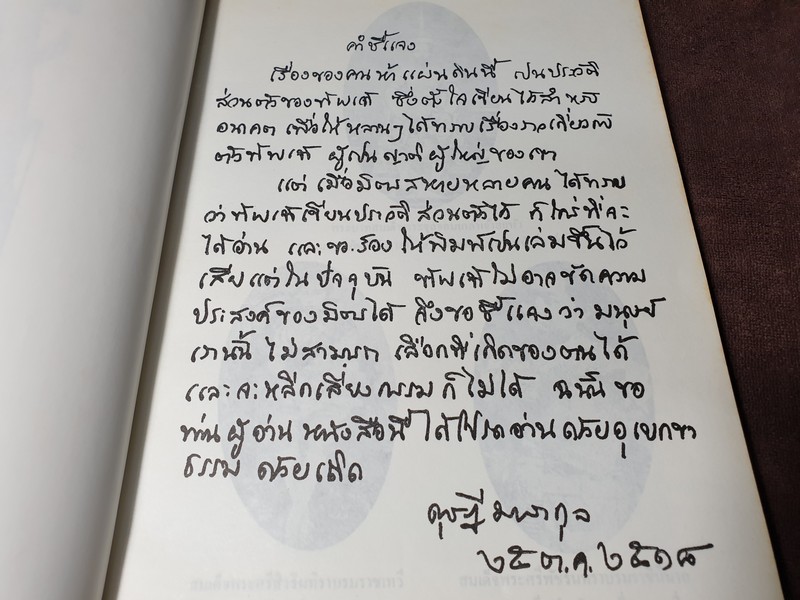 คำชี้แจง
เรื่องของคนห้าแผ่นดินนี้ เป็นประวัติ
ส่วนตัวของข้าพเจ้า ซึ่งตั้งใจเขียนไว้สำหรับ
อนาคต เพื่อให้หลานๆได้ทราบเรื่องราวเกี่ยวกับ
ตัวข้าพเจ้า ผู้เป็นญาติผู้ใหญ่ของเขา
แต่เมื่อมิตรสหายหลายคน ได้ทราบ
ว่าข้าพเจ้าเขียนประวัติส่วนตัวไว้ ก็ใคร่ที่จะ
ได้อ่าน และขอร้องให้พิมพ์เป็นเล่มขึ้นไว้
เสียแต่ในปัจจุบัน ข้าพเจ้าไม่อาจขัดความ
ประสงค์ของมิตรได้ จึงขอชี้แจงว่า มนุษย์
เรานี้ ไม่สามารถ เลือกที่เกิดของตนได้
และจะหลีกเลี่ยงกรรมก็ไม่ได้ ฉะนั้น ขอ
ท่านผู้อ่านหนังสือนี้ ได้โปรดอ่านด้วยอุเบกขา
ธรรม ด้วยเถิด
มหากุล
๒๕ ต.ค. ๒๕๑๘